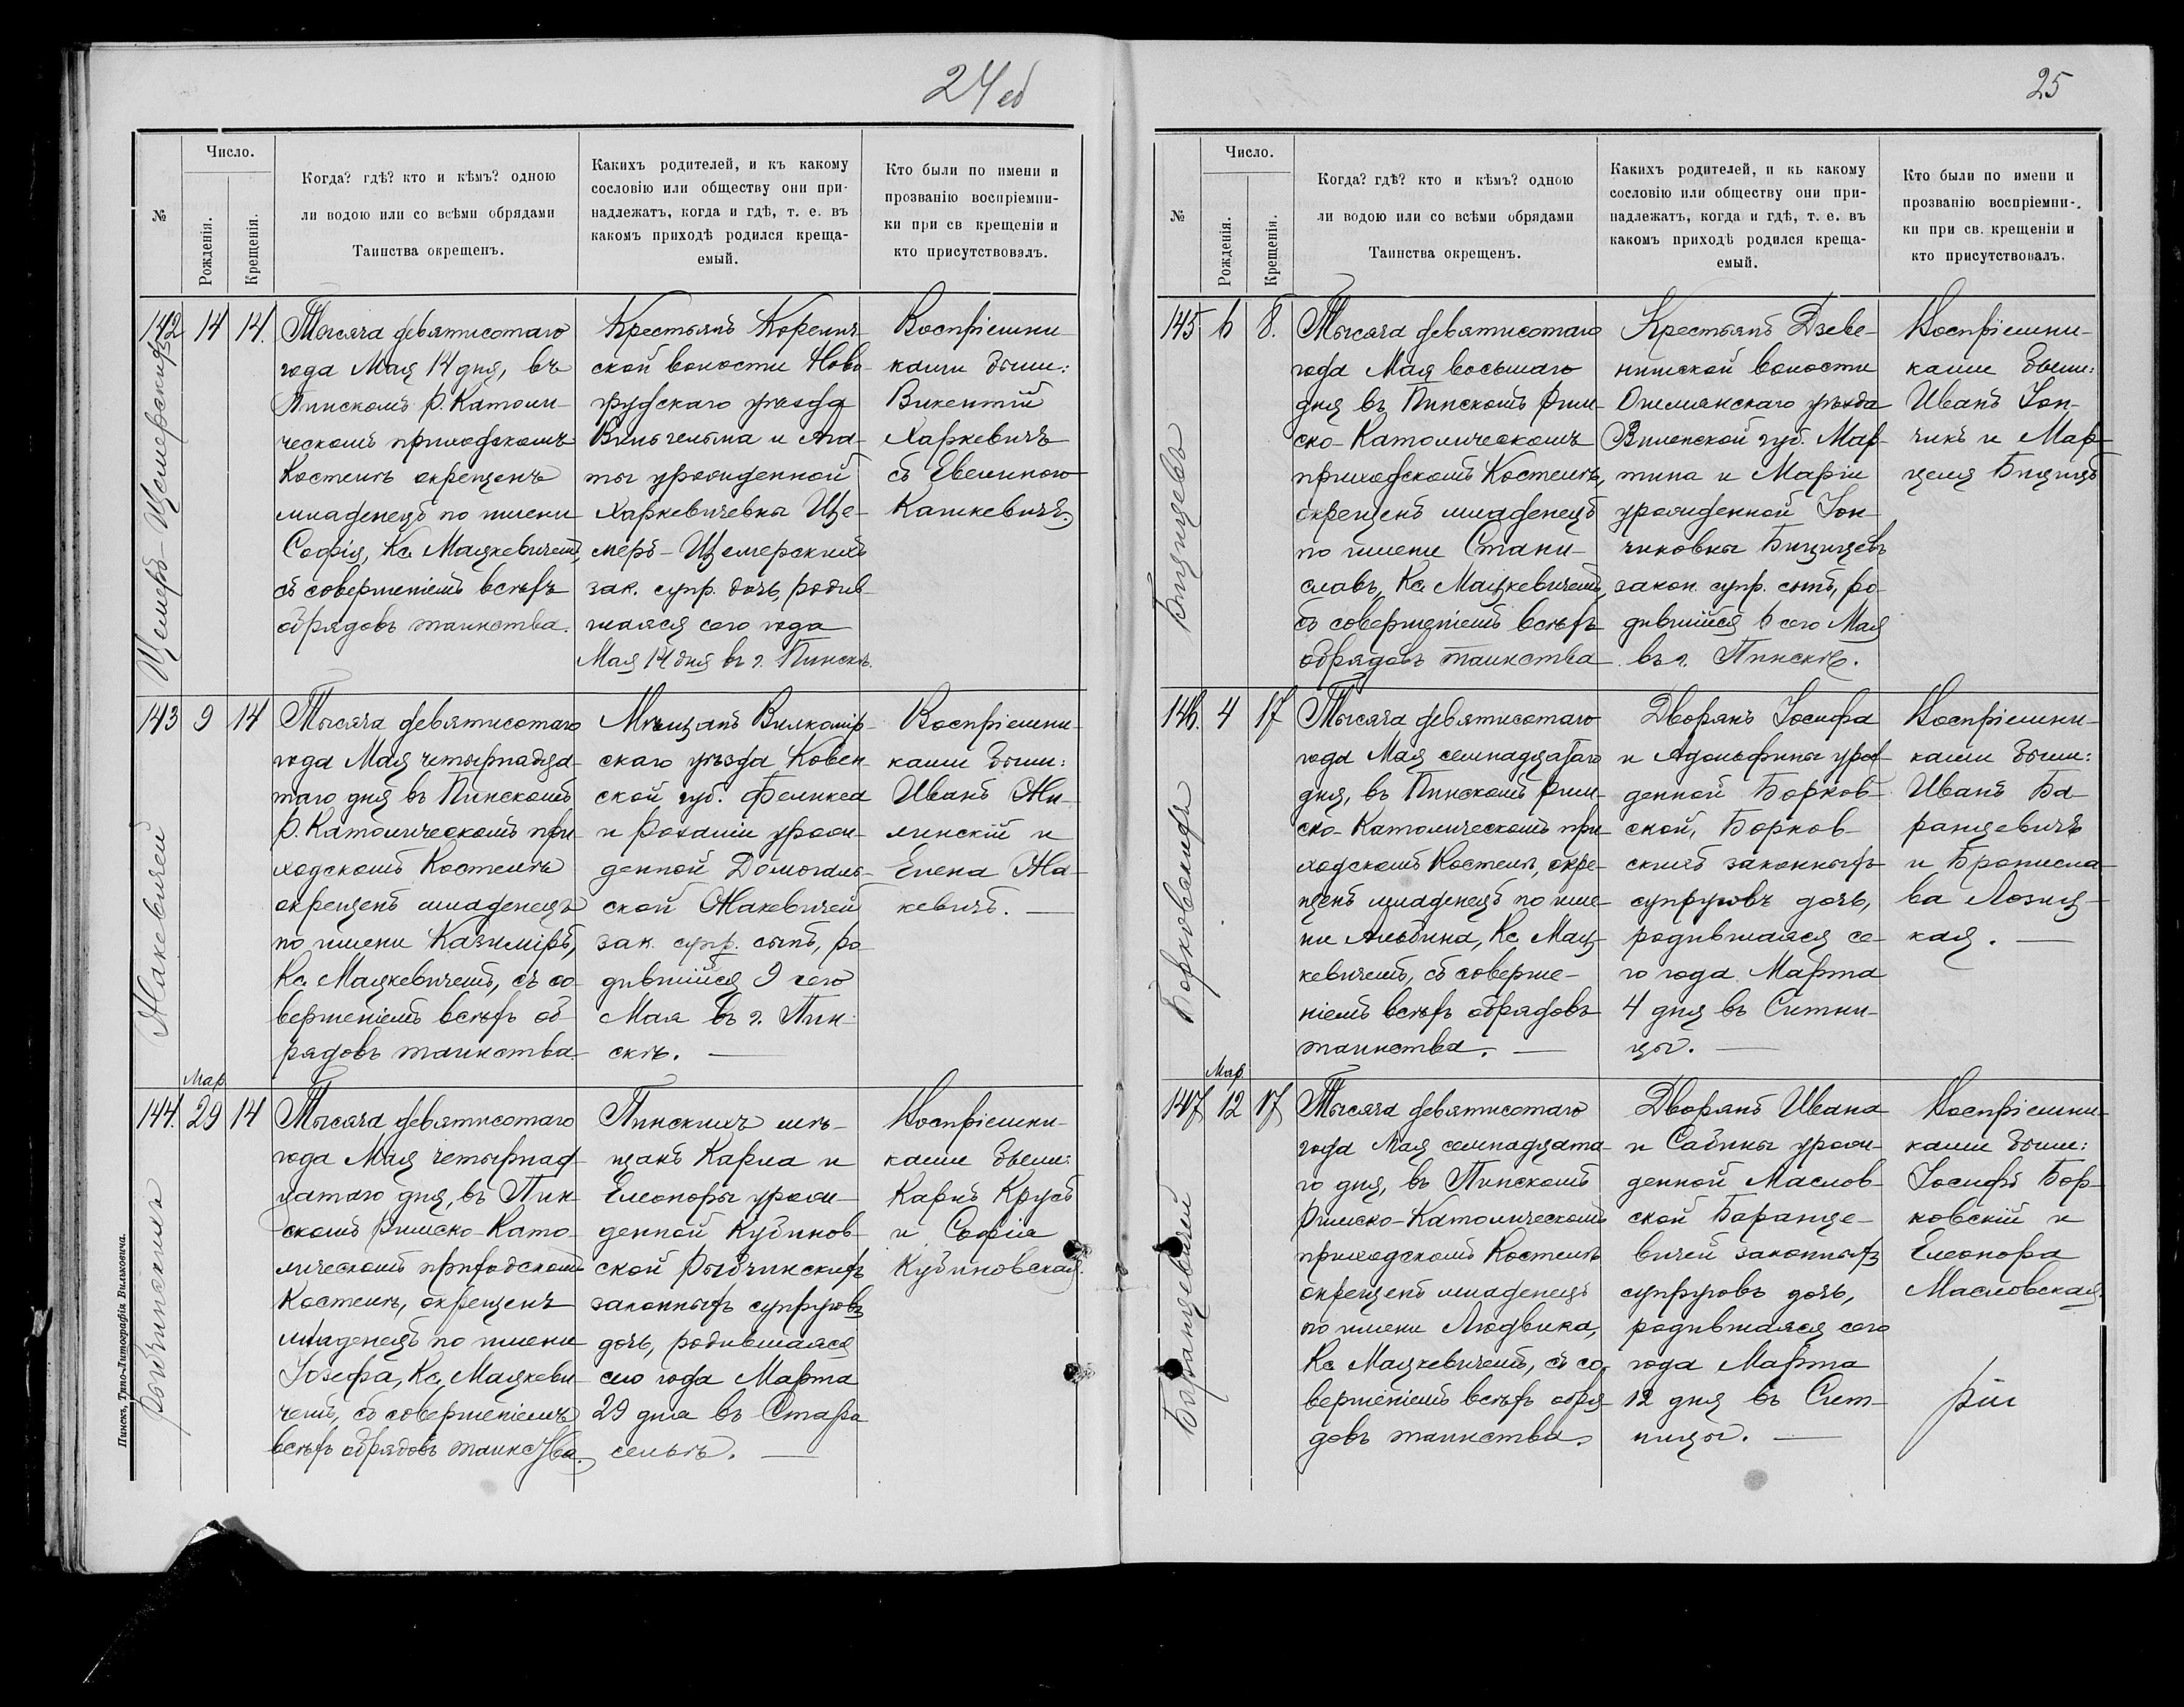 24 об
№
Число.
Рожденія.
Крещенія.
Когда? гдѣ? кто и кѣмъ? одною
ли водою или со всѣми обрядами
Таинства окрещенъ.
Какихъ родителей, и къ какому
сословію или обществу они при-
надлежатъ, когда и гдѣ, т. е. въ
какомъ приходѣ родился креща-
емый.
Кто были по имени и
прозванію воспріемни-
ки при св крещеніи и
кто присутствовалъ.
142 14 14.
Щемеръ-Щемерскихъ
Тысяча девятисотаго
года Мая 14 дня, въ
Пинскомъ Р. Католи-
ческомъ приходскомъ
Костелѣ окрещенъ
младенецъ по имени
Софія, Кс. Мацкевичемъ,
съ совершеніемъ всѣхъ
обрядовъ таинства.
Крестьянъ Корелич-
ской волости Ново-
грудскаго уѣзда
Вильгельма и Ага-
ты урожденной
Харкевичевны Ще-
меръ-Щемерскихъ
зак. супр. дочь, родив-
шаяся сего года
Мая 14 дня въ г. Пинскѣ.
Воспріемни-
ками были:
Викентій
Харкевичъ
съ Евелиною
Кашкевичъ.
143 9 14
Жакевичей
Тысяча девятисотаго
года Мая четырнадца-
таго дня въ Пинскомъ
Р. Католическомъ при-
ходскомъ Костелѣ
окрещенъ младенецъ
по имени Казиміръ,
Кс. Мацкевичемъ, съ со-
вершеніемъ всѣхъ об-
рядовъ таинства
Мѣщанъ Вилкомір-
скаго уѣзда Ковен-
ской губ. Феликса
и Розаліи урож-
денной Домогаль-
ской Жакевичей
зак. супр. сынъ, ро-
дившійся 9 сего
Мая въ г. Пин-
скѣ. —
Воспріемни-
ками были:
Иванъ Жи-
линскій и
Елена Жа-
кевичъ. —
Мар.
144. 29 14
Рыбчинскихъ
Тысяча девятисотаго
года Мая четырнад-
цатаго дня, въ Пин-
скомъ Римско-Като-
лическомъ приходскомъ
Костелѣ, окрещенъ
младенецъ по имени
Іозефа, Кс. Мацкеви-
чемъ, съ совершеніемъ
всѣхъ обрядовъ таинства.
Пинскихъ мѣ-
щанъ Карла и
Елеоноры урож-
денной Кубинов-
ской Рыбчинскихъ
законныхъ супруговъ
дочь, родившаяся
сего года Марта
29 дня въ Старо-
сельѣ. —
Воспріемни-
ками были:
Карлъ Крусъ
и Софія
Кубиновская.
Пинскъ, Типо-Литографія Вильковича.
25
№
Число.
Рожденія.
Крещеніи.
Когда? гдѣ? кто и кѣмъ? одною
ли водою или со всѣми обрядами
Таинства окрещенъ.
Какихъ родителей, и къ какому
сословію или обществу они при-
надлежатъ, когда и гдѣ, т. е. въ
какомъ приходѣ родился креща-
емый.
Кто были по имени и
прозванію воспріемни-
ки при св. крещеніи и
кто присутствовалъ.
145. 6 8.
Бицицевъ
Тысяча девятисотаго
года Мая восьмаго
дня въ Пинскомъ Рим-
ско-Католическомъ
приходскомъ Костелѣ,
окрещенъ младенецъ
по имени Стани-
славъ, Кс. Мацкевичемъ,
съ совершеніемъ всѣхъ
обрядовъ таинства.
Крестьянъ Дзеве-
нишской волости
Ошмянскаго уѣзда
Виленской губ. Мар-
тина и Маріи
урожденной Іон-
чиковны Бицицевъ
закон. супр. сынъ, ро-
дившійся 6 сего Мая
въ г. Пинскѣ.
Воспріемни-
ками были:
Иванъ Іон-
чикъ и Мар-
целя Бицицъ
146. 4 17
Борковскихъ
Тысяча девятисотаго
года Мая семнадцатаго
дня, въ Пинскомъ Рим-
ско-Католическомъ при-
ходскомъ Костелѣ, окре-
щенъ младенецъ по име-
ни Альбина, Кс. Мац-
кевичемъ, съ соверше-
ніемъ всѣхъ обрядовъ
таинства. —
Дворянъ Іосифа
и Адольфины урож-
денной Борков-
ской, Борков-
скихъ законныхъ
супруговъ дочь,
родившаяся се-
го года Марта
4 дня въ Ситни-
цы. —
Воспріемни-
ками были:
Иванъ Ба-
ранцевичъ
и Бронисла-
ва Лозиц-
кая. —
Мар.
147 12 17
Баранцевичей
Тысяча девятисотаго
года Мая семнадцата-
го дня, въ Пинскомъ
Римско-Католическомъ
приходскомъ Костелѣ
окрещенъ младенецъ
по имени Людвика,
Кс. Мацкевичемъ, съ со-
вершеніемъ всѣхъ обря-
довъ таинства.
Дворянъ Ивана
и Сабины урож-
денной Маслов-
ской Баранце-
вичей законныхъ
супруговъ дочь,
родившаяся сего
года Марта
12 дня въ Сит-
ницы. —
Воспріемни-
ками были:
Іосифъ Бор-
ковскій и
Елеонора
Масловская.